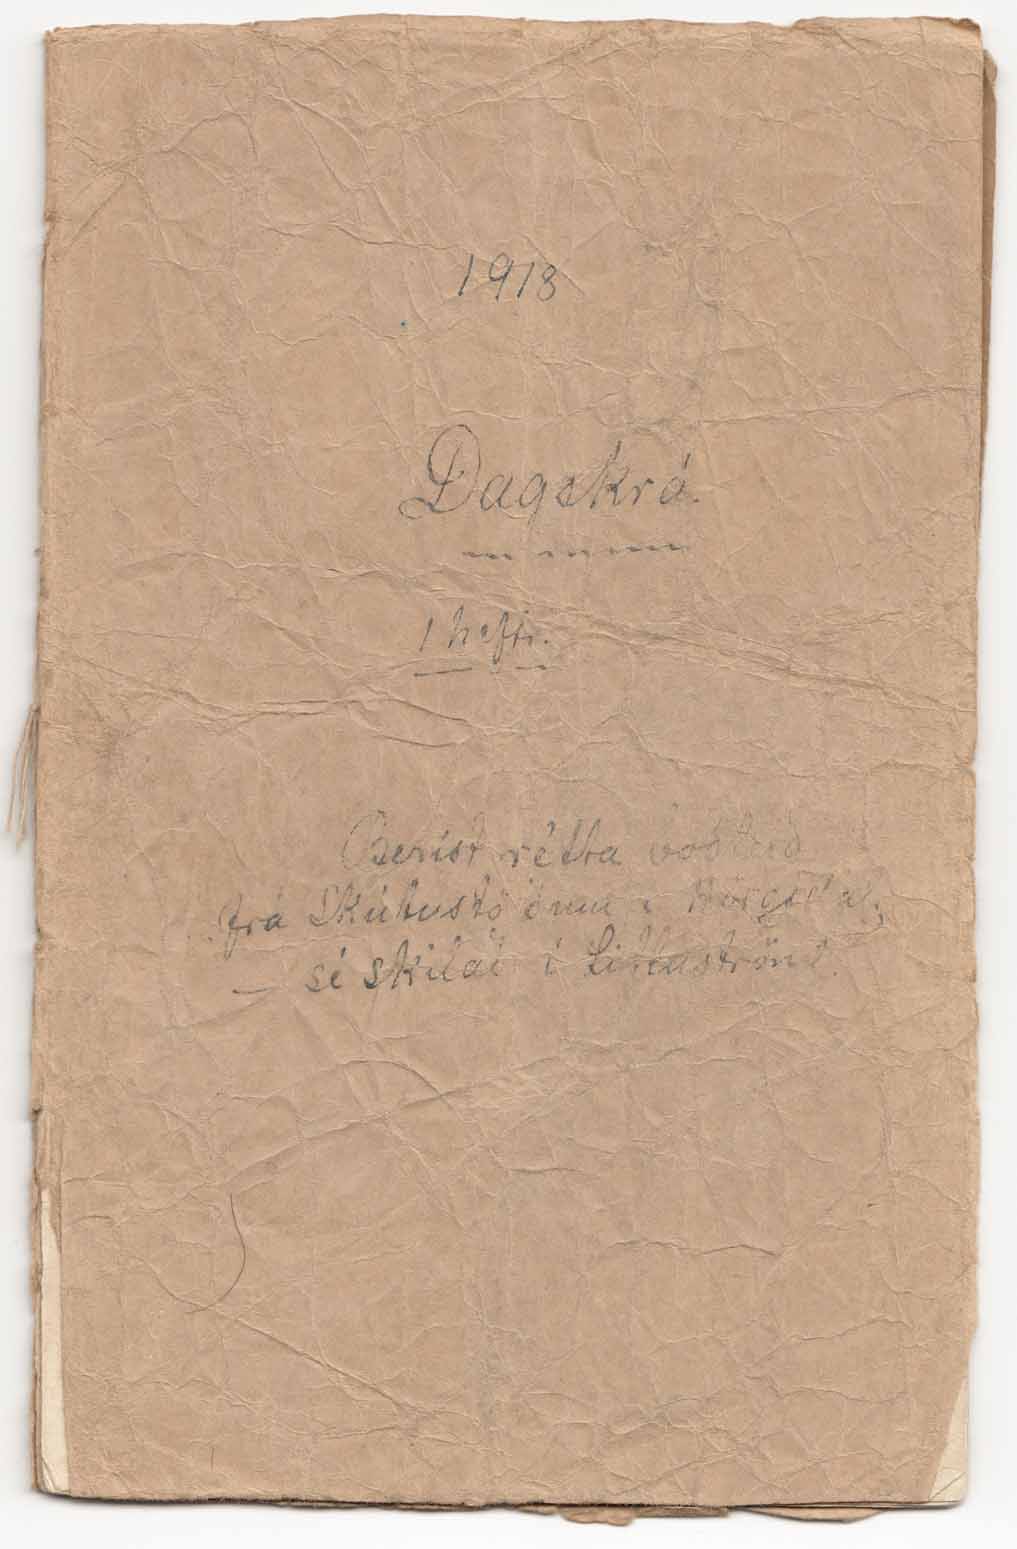 1918
Dagskrá.
1 hefti.
Berist rétta boðleið
frá Skútustöðum í
sé skilað í Litluströnd.